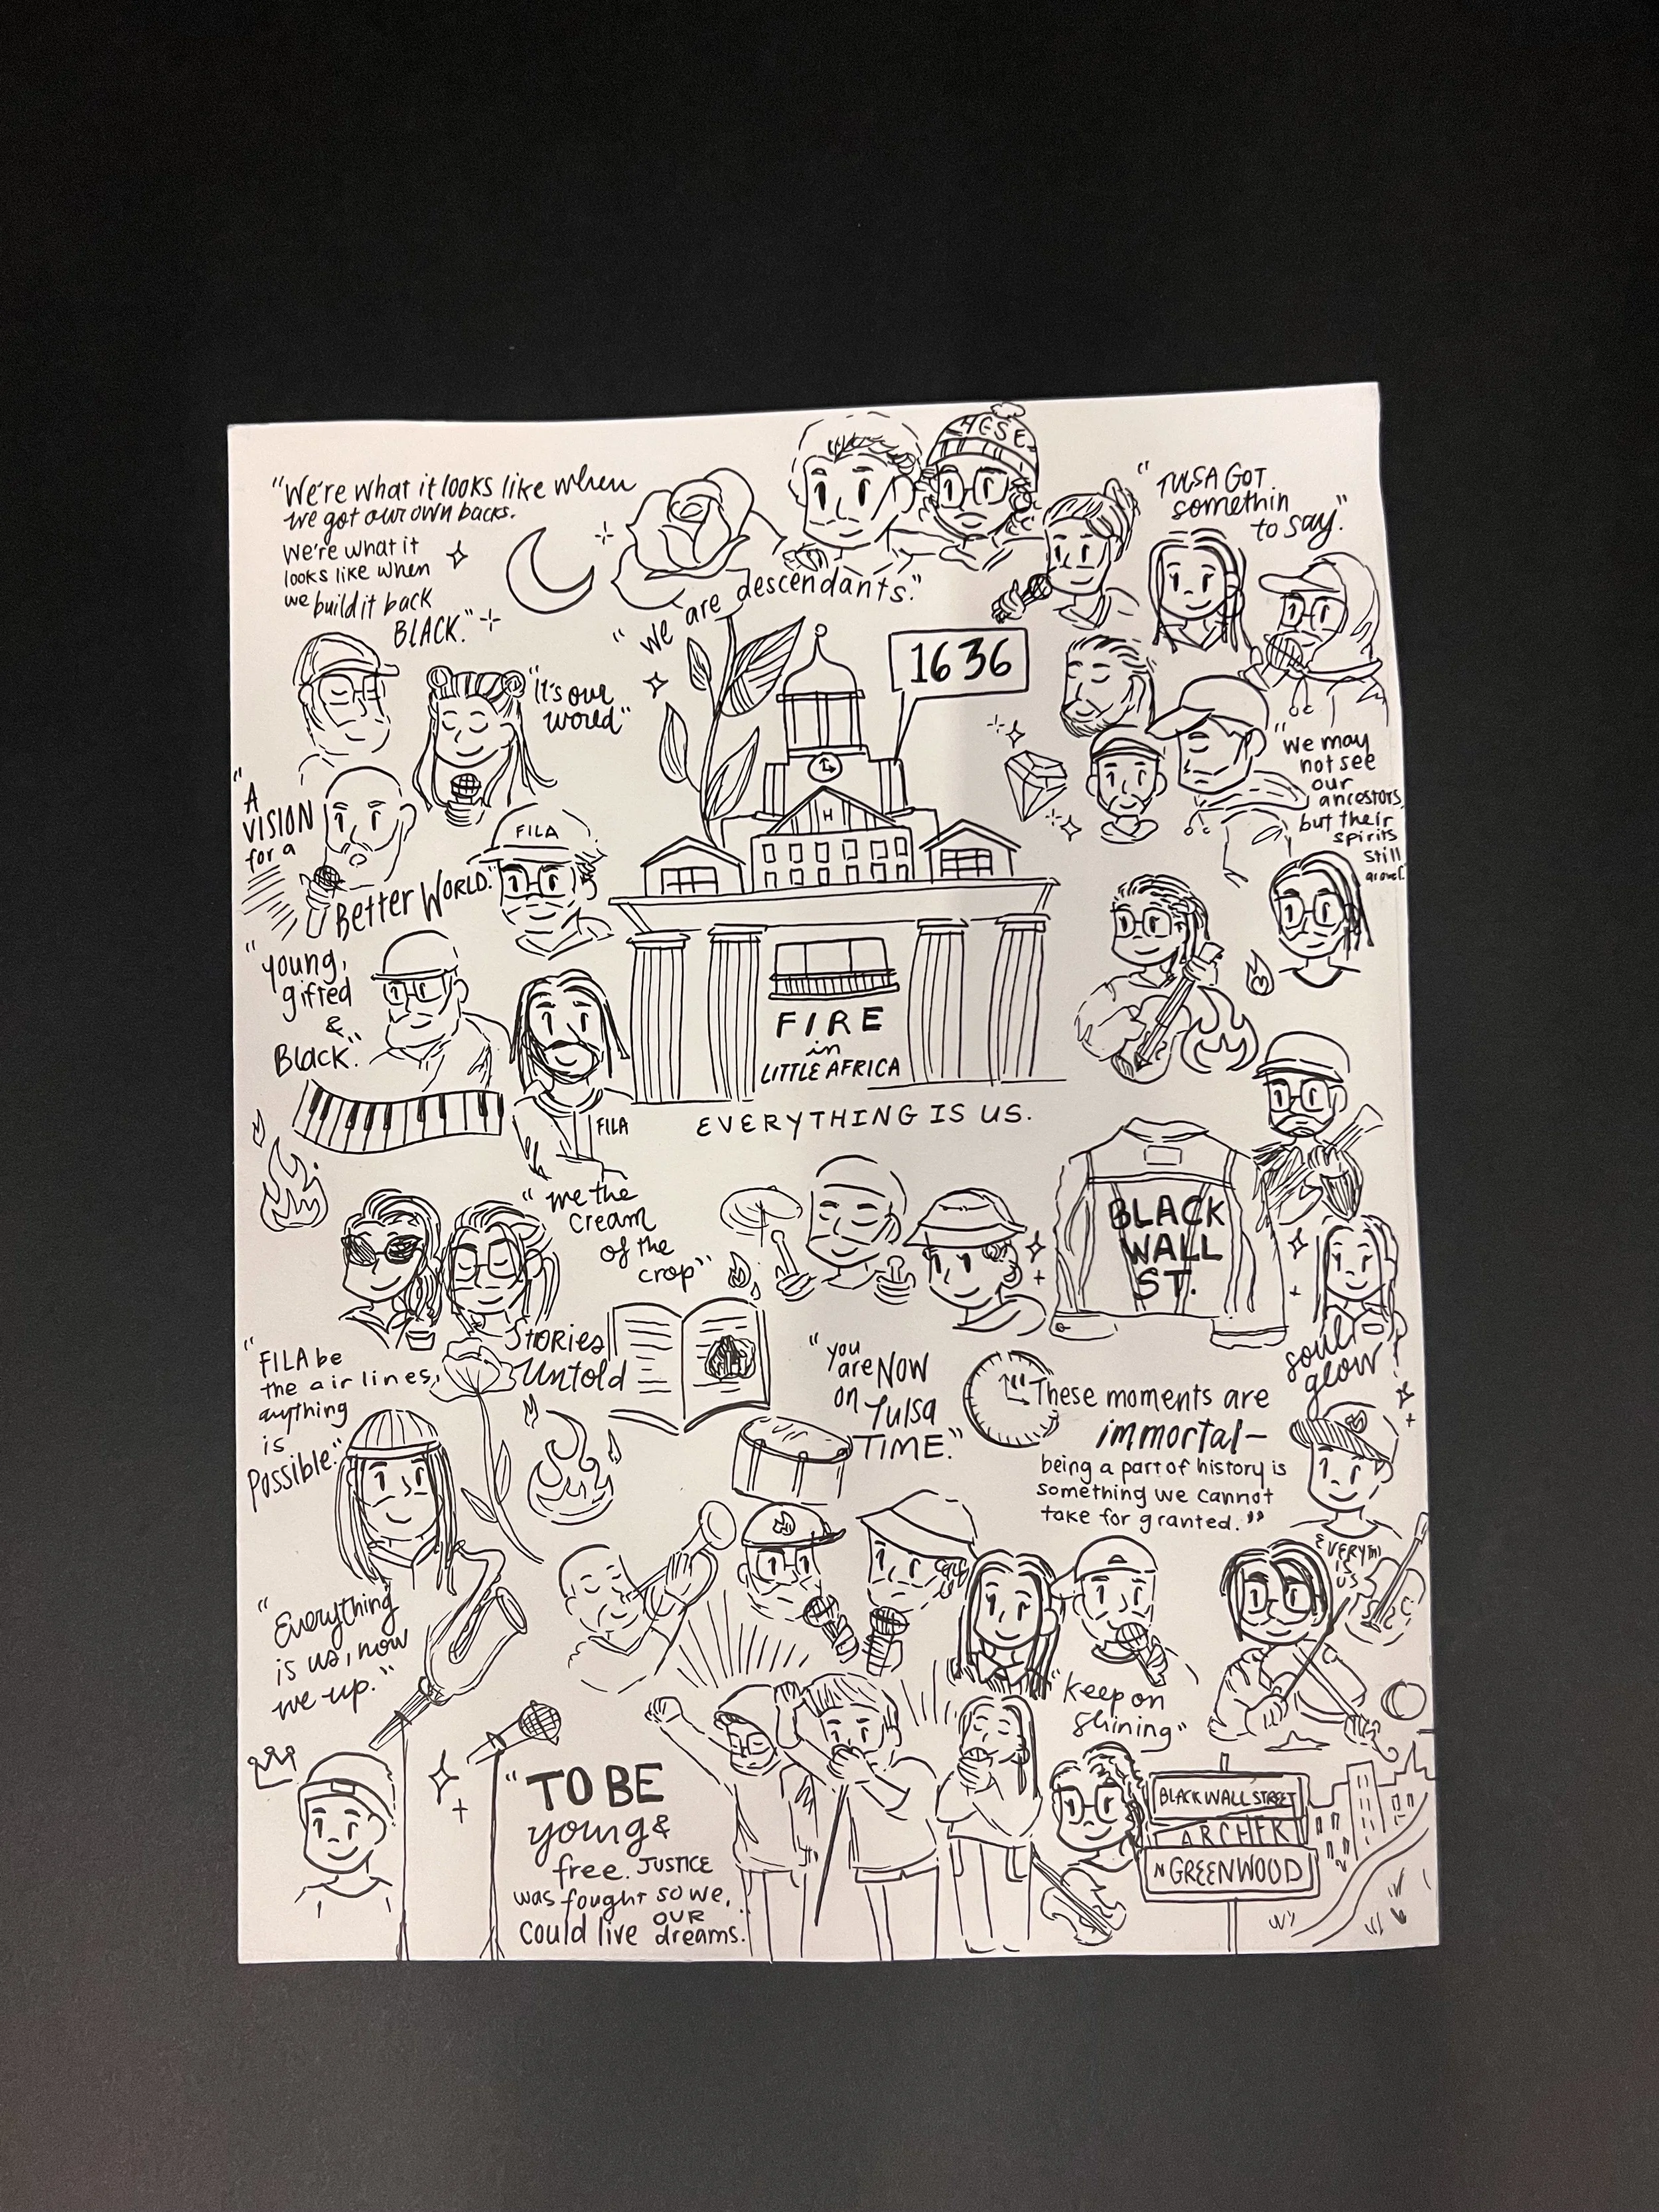 "We're what it looks like when
we got our own backs.
We're what it
looks like when
we build it back
BLACK."
"We are descendants."
HESE
"TULSA GOT
somethin
to say."
"it's our
world"
1636
"We may
not see
our
ancestors,
but their
spirits
still
"A
VISION
for a
Better World."
FILA
H
"young,
gifted
&
Black."
FIRE
in
LITTLE AFRICA
EVERYTHING IS US.
FILA
"We the
cream
of the
crop"
BLACK
WALL
ST.
Soul
glow
Stories
Untold
"FILA be
the air lines,
anything
is
Possible."
"you
are NOW
on Tulsa
TIME."
"These moments are
immortal—
being a part of history is
something we cannot
take for granted."
EVERYTHI
IS
US
"Everything
is us, now
we up."
"Keep on
Shining"
"TO BE
young &
free. JUSTICE
was fought so we,
could live OUR
dreams."
BLACK WALL STREET
ARCHER
N GREENWOOD